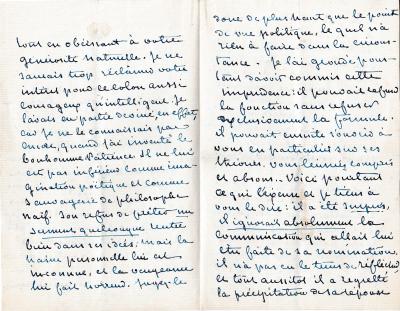 tout en obéissant à votre
générosité naturelle. Je ne
saurais trop réclamer votre
intérêt pour ce colon aussi
courageux qu'intelligent. Je
l'avais en partie deviné, en effet,
car je ne le connaissais pas
encore, quand j'ai inventé le
bonhomme Patience. Il ne lui
est pas inférieur comme ima-
gination poétique et comme
sauvagerie de philosophe
naïf. Son refus de prêter un
serment quelconque rentre
bien dans ses idées, mais la
haine personnelle lui est
inconnue, et la vengeance
lui fait horreur. Jugez-le
donc de plus haut que le point
de vue politique, lequel n'a
rien à faire dans la circons-
tance. Je l'ai grondé pour-
tant d'avoir commis cette
imprudence : il pouvait refuser
la fonction sans refuser
explicitement la formule.
Il pouvait ensuite s'ouvrir à
vous en particulier sur ses
théories. Vous l'eussiez compris
et absous. Voici pourtant
ce qui l'excuse et je tiens à
vous le dire : il a été surpris,
il ignorait absolument la
communication qui allait lui
être faite de sa nomination,
il n'a pas eu le temps de réfléchir
et tout aussitôt il a regretté
la précipitation de sa réponse